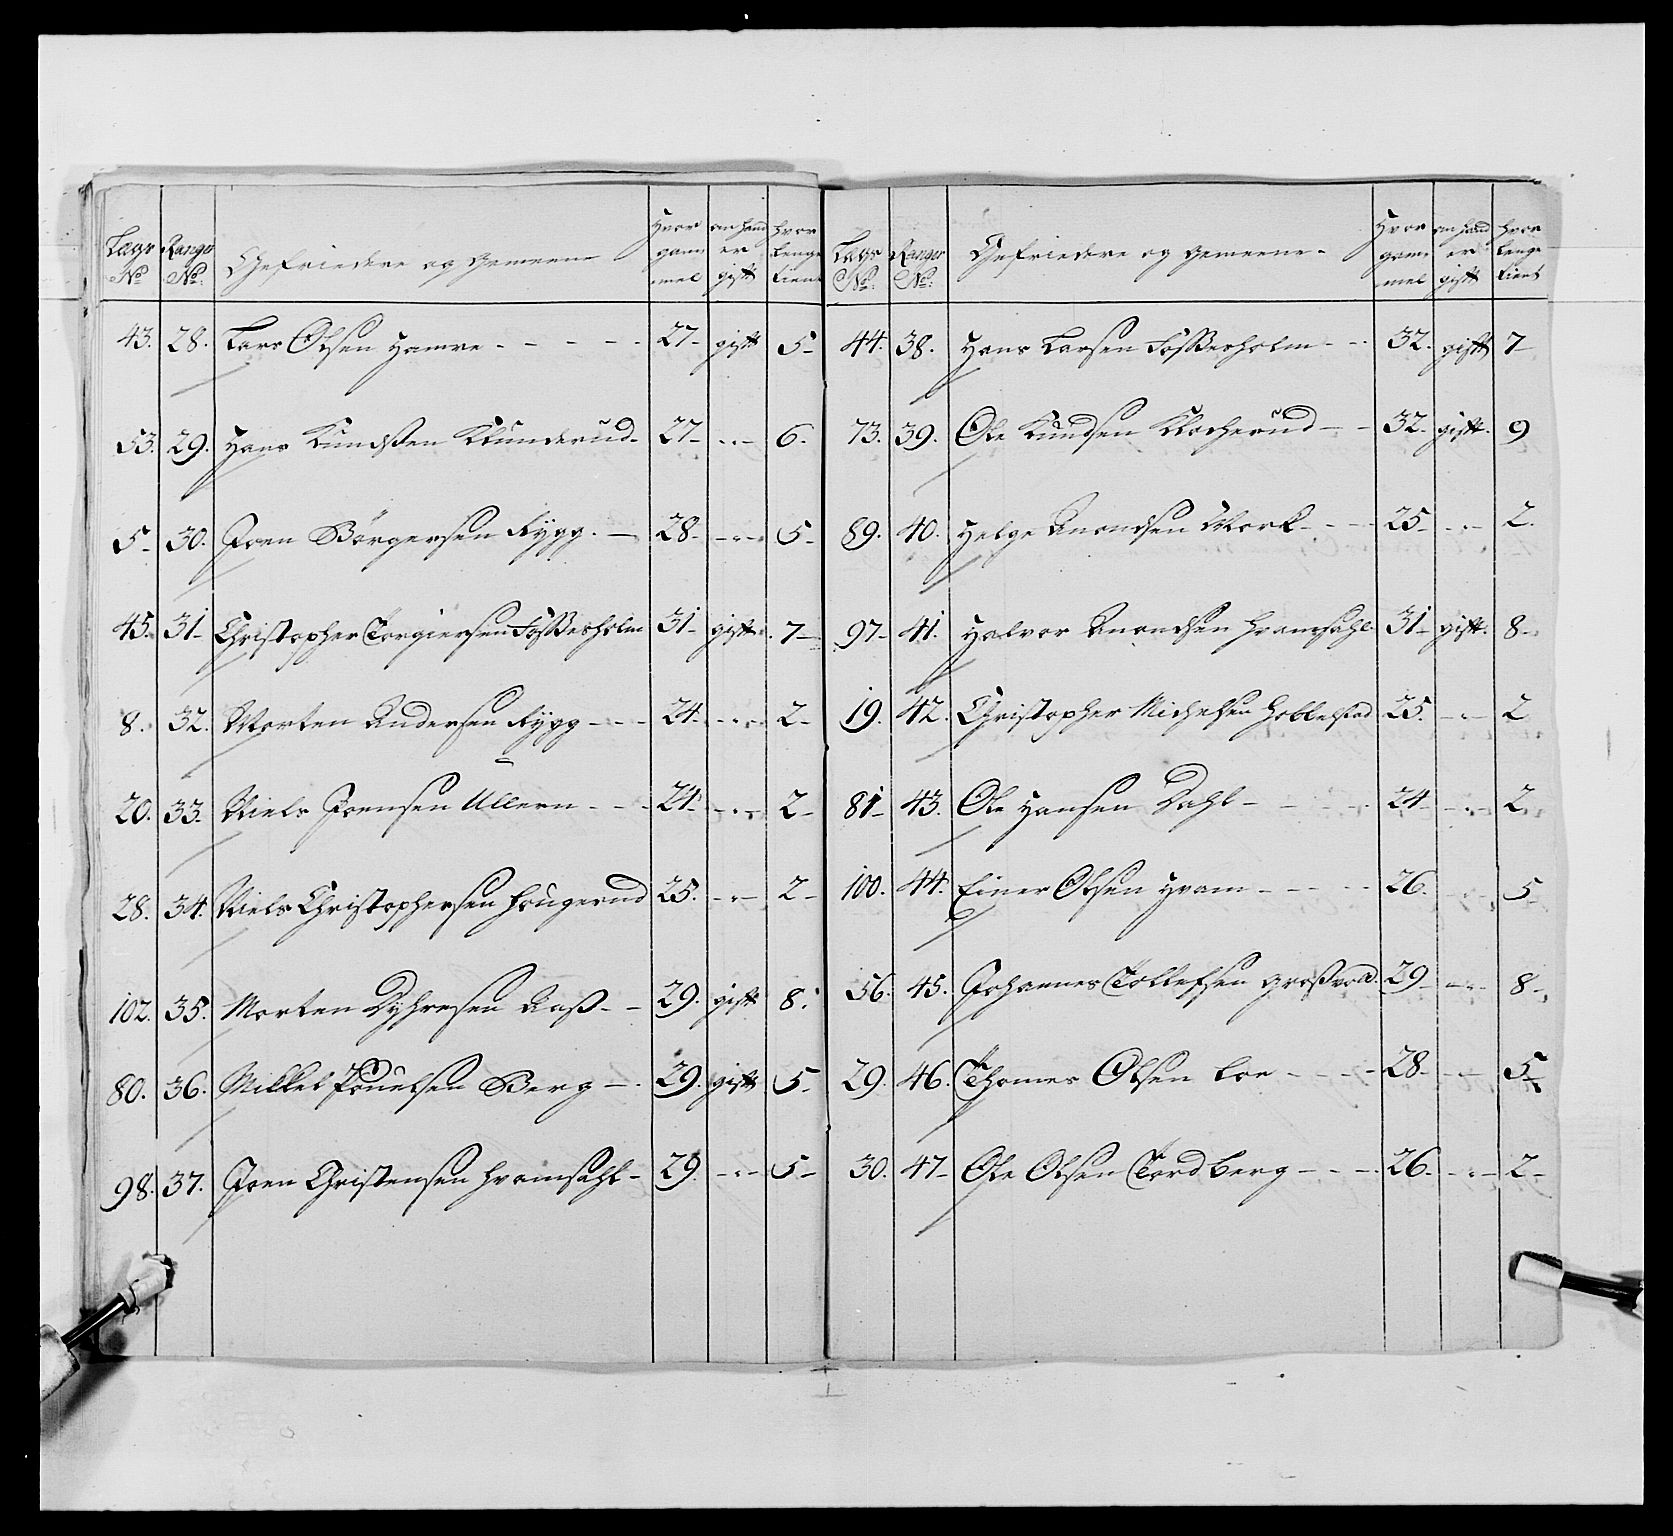 Lægs No Range No: Gefriedere og Gemeene Hvor gam mel om hand er gift hvor lenge tient
43. 28. Lars Olsen Hamre - - - - - 27- gift 5-
53. 29. Hans Knudsen Klunderud- 27- -"- 6.
5- 30. Joen Börgersen Rygg. - 28- -"- 5-
45. 31- Christopher Torgiersen Fosßesholm 31- gift. 7-
8. 32. Morten Andersen Rygg - - - 24. -"- 2-
20. 33. Niels Joensen Ullern - - - 24- -"- 2-
28. 34. Niels Christophersen Hougerud 25. -"- 2-
102. 35. Morten Dyhresen Aaß - - 29. gift 8.
80. 36. Mikkel Pouelsen Berg - 29. gift 5-
98. 37. Joen Christensen Hvamsahl - 29. -"- 5-
Lægs No: Range No: Gefriedere og Gemeene - Hvor gam mel om hand er gift hvor lenge tient
44. 38. Hans Larsen Fosßesholm - - 32. gift 7-
73. 39. Ole Knudsen Klocherud - - 32. gift. 9
89. 40. Helge Amondsen Mork - - - 25- -"- 2.
97- 41. Halvor Amondsen Hvamsahl- 31- gift. 8-
19. 42. Christopher Michelsen Hobbelstad 25. -"- 2
81- 43. Ole Hansen Dahl - - - - 24- -"- 2
100. 44. Einer Olsen Hvam - - - - 26. -"- 5-
56. 45. Johannes Tollefsen Großvold. 29- -"- 8-
29. 46. Thomes Olsen Loe - - - - 28- -"- 5-
30. 47- Ole Olsen Tordberg - - - 26- -"- 2-